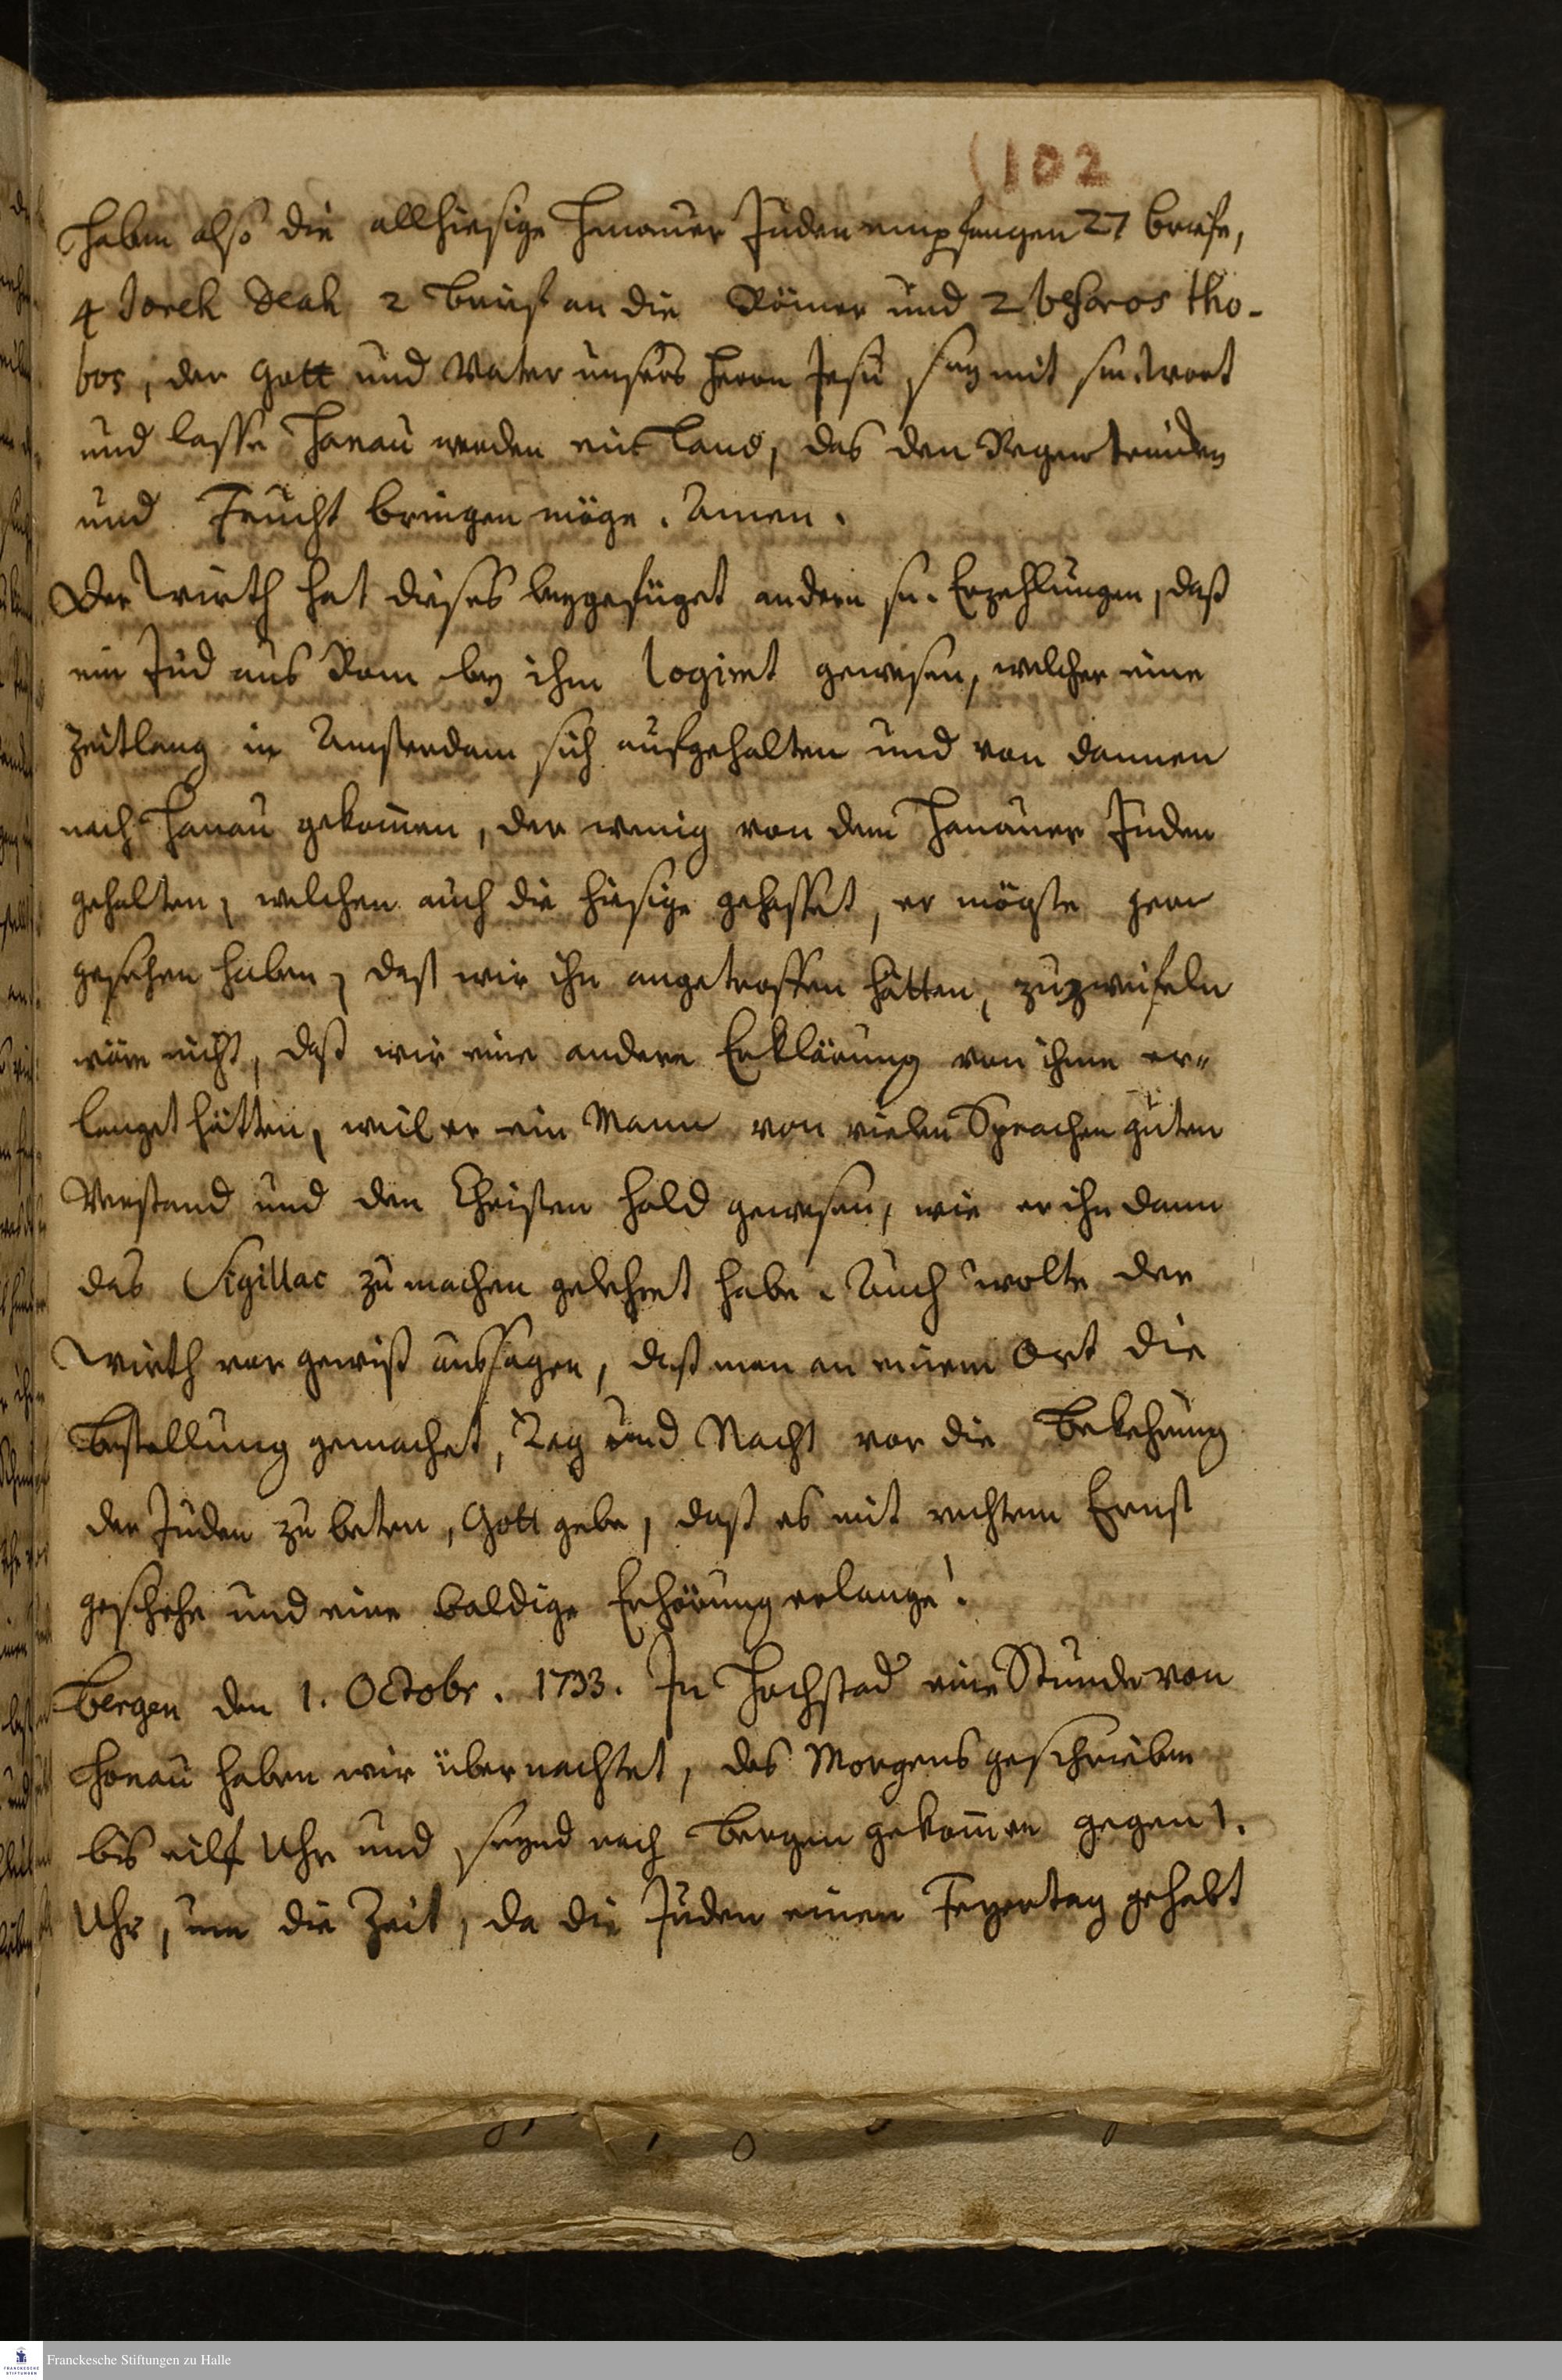 (102
Haben also die allhiesige Hanauer Juden empfangen 27 briefe,
4 Joreh deah, 2 brieff an die Römer und 2 besoros tho-
bos, der Gott und Vater unsers Herrn Jesu sey mit sm. Wort
und lasse Hanau werden ein Land, das den Regen trincken
und Frucht bringen möge. Amen.
Der Wirth hat dieses beygefüget andern sn. Erzehlungen, daß
ein Jud aus Rom bey ihm logiret gewesen, welcher eine
Zeitlang in Amsterdam sich aufgehalten und von dannen
nach Hanau gekom̄en, der wenig von dem Hanauer Juden
gehalten, welchen auch die hiesige gehasset, er mögte gern
gesehen haben, daß wir ihn angetroffen hätten, zuzweifeln
wäre nicht, daß wir eine andere Erklärung von ihme er-
langet hätten, weil er ein Mann von vielen Sprachen guten
Verstand und den Christen hold gewesen, wie er ihn dann
das Sigillac zu machen gelehret habe. Auch wolte der
Wirth vor gewiß aussagen, daß man an einem Ort die
Bestellung gemachet, Tag und Nacht vor die Bekehrung
der Juden zu beten, Gott gebe, daß es mit rechtem Ernst
geschehe und eine baldige Erhörung erlange!
Bergen den 1. Octobr. 1733. In Hochstad eine Stunde von
Hanau haben wir übernachtet, des Morgens geschrieben
bis eilf Uhr und seynd nach Bergen gekom̄en gegen 1.
Uhr, um die Zeit, da die Juden einen Feyertag gehabt
Franckesche Stiftungen zu Halle